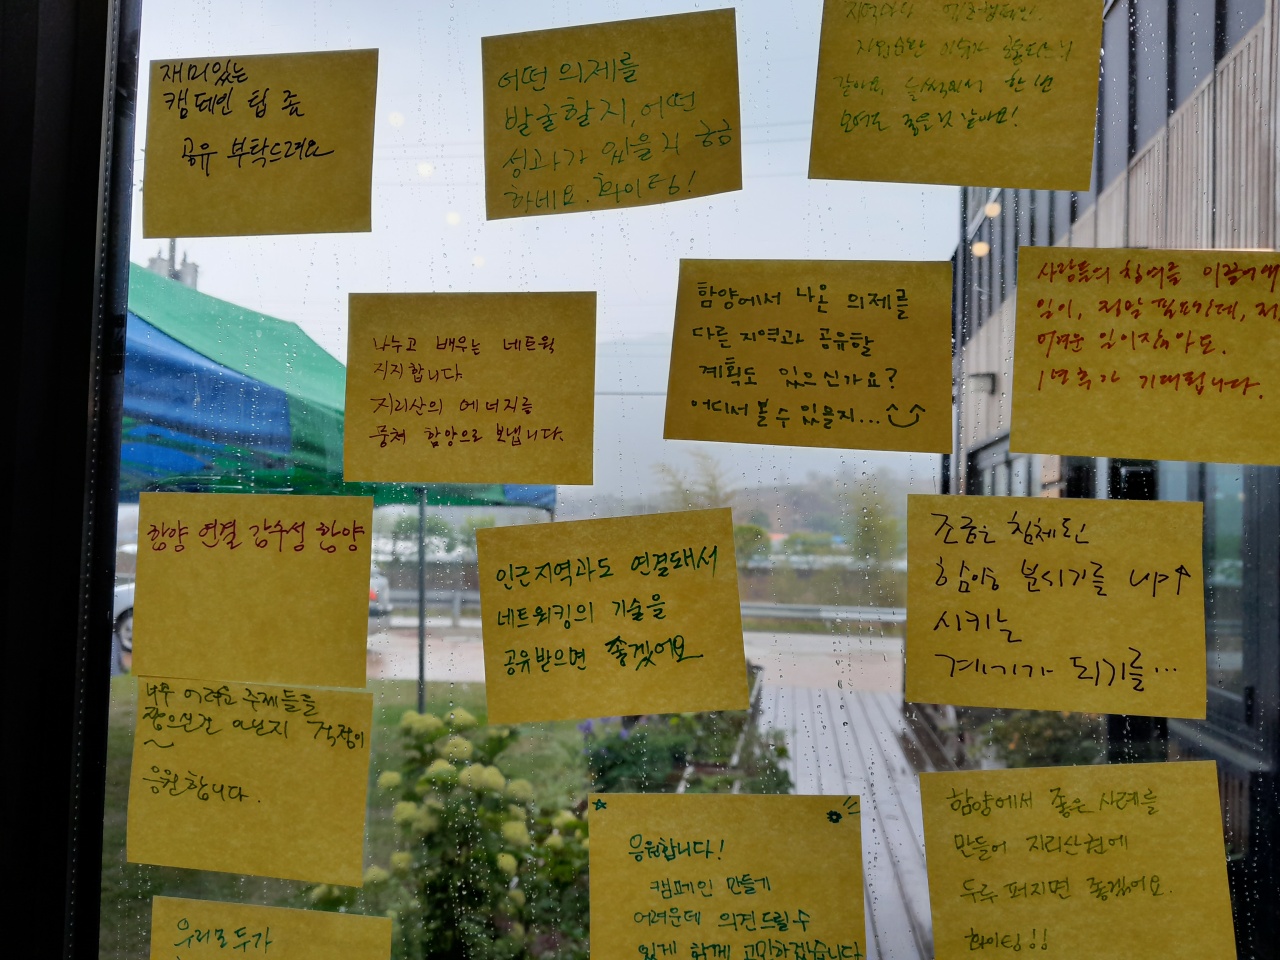 재미있는
캠페인 팁 좀
공유 부탁드려요
어떤 의제를
발굴할지, 어떤
성과가 있을지 궁금
하네요. 화이팅!
같아요 한 번
모여도 좋을 것 같아요!
나누고 배우는 네트웍
지지합니다.
지리산의 에너지를
뭉쳐 함양으로 보냅니다.
함양에서 나온 의제를
다른 지역과 공유할
계획도 있으신가요?
어디서 볼 수 있을지...
사람들의 참여를 이끌어내
일이, 정말 필요한데, 저
어려운 일이잖아요.
1년 후가 기대됩니다.
함양 연결 감수성 함양
인근지역과도 연결돼서
네트워킹의 기술을
공유받으면 좋겠어요
조금은 침체된
함양 분위기를 UP↑
시키는
계기가 되기를...
너무 어려운 주제들을
잡으신건 아닌지 걱정이
~
응원합니다.
응원합니다!
캠페인 만들기
어려운데 의견드릴 수
있게 함께 고민하겠습니다
함양에서 좋은 사례를
만들어 지리산권에
두루 퍼지면 좋겠어요.
화이팅!!
우리모두가